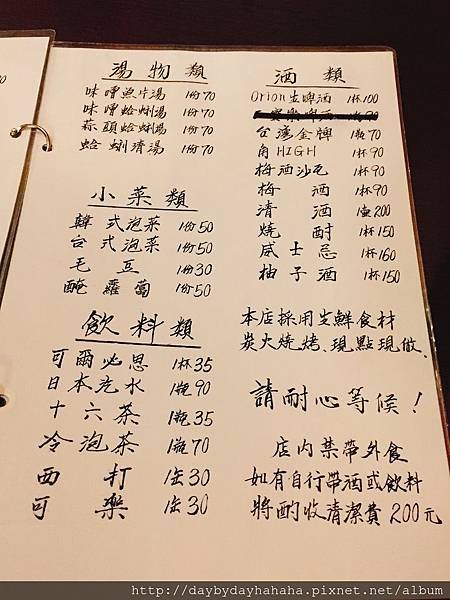 湯物類
味噌魚片湯 1份70
味噌蛤蜊湯 1份70
蒜頭蛤蜊湯 1份70
蛤蜊清湯 1份70
小菜類
韓式泡菜 1份50
台式泡菜 1份50
毛豆 1份30
醃蘿蔔 1份50
飲料類
可爾必思 1杯35
日本汽水 1瓶90
十六茶 1瓶35
冷泡茶 1瓶70
西打 1缶30
可樂 1缶30
酒類
Orion生啤酒 1杯100
台灣金牌 1瓶70
角HIGH 1杯90
梅酒沙瓦 1杯90
梅酒 1杯90
清酒 1壺200
燒酎 1杯150
威士忌 1杯160
柚子酒 1杯150
本店採用生鮮食材
炭火燒烤、現點現做、
請耐心等候！
店內禁帶外食
如有自行帶酒或飲料
將酌收清潔費200元
http://daybydayhahaha.pixnet.net/album